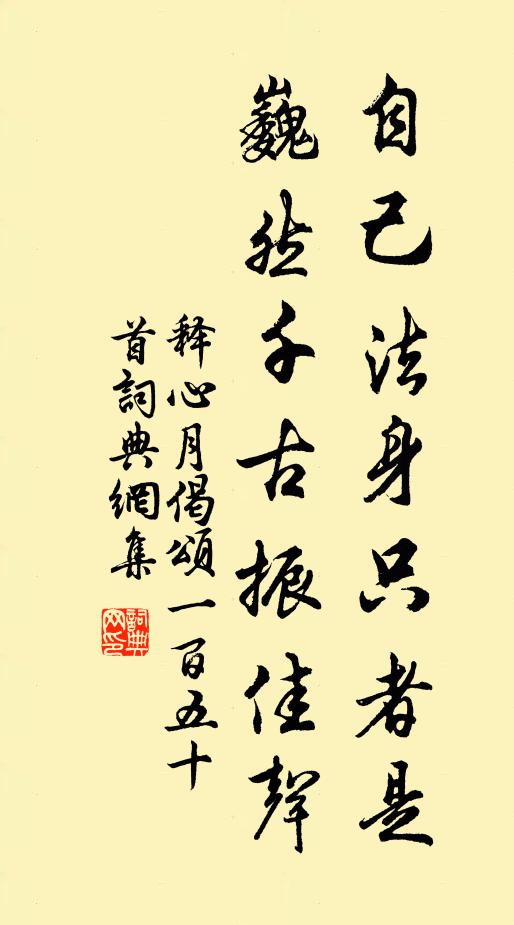 自己法身只者是
巍然千古振佳聲
释心月偈頌一百五十
首詞典網集
詞典
网印